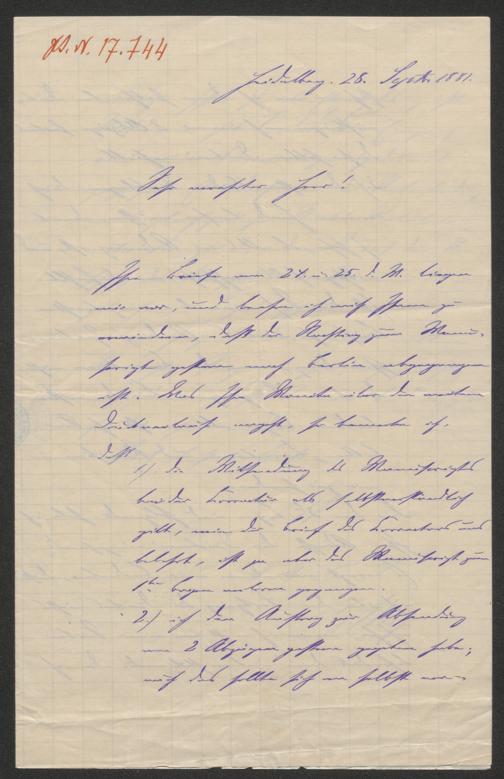 J. N. 17.744
Heidelberg. 28. Septbr. 1881.
Sehr verehrter Herr!
Ihre Briefe vom 24. u. 25. d. M. liegen
mir vor, und beehre ich mich Ihnen zu
erwiedern, daß der Nachtrag zum Manu-
script gestern nach Berlin abgegangen
ist. Was Ihre Monita über den weitern
Druckverlauf angeht, so bemerke ich,
daß
1.) die Mitsendung des Manuscripts
bei der Correctur als selbstverständlich
gilt, wie der Brief des Correctors uns
belehrt, ist ja aber das Manuscript zum
1ten Bogen verloren gegangen.
2.) ich den Auftrag zur Absendung
von 2 Abzügen gestern gegeben habe;
auch das sollte sich von selbst ver-